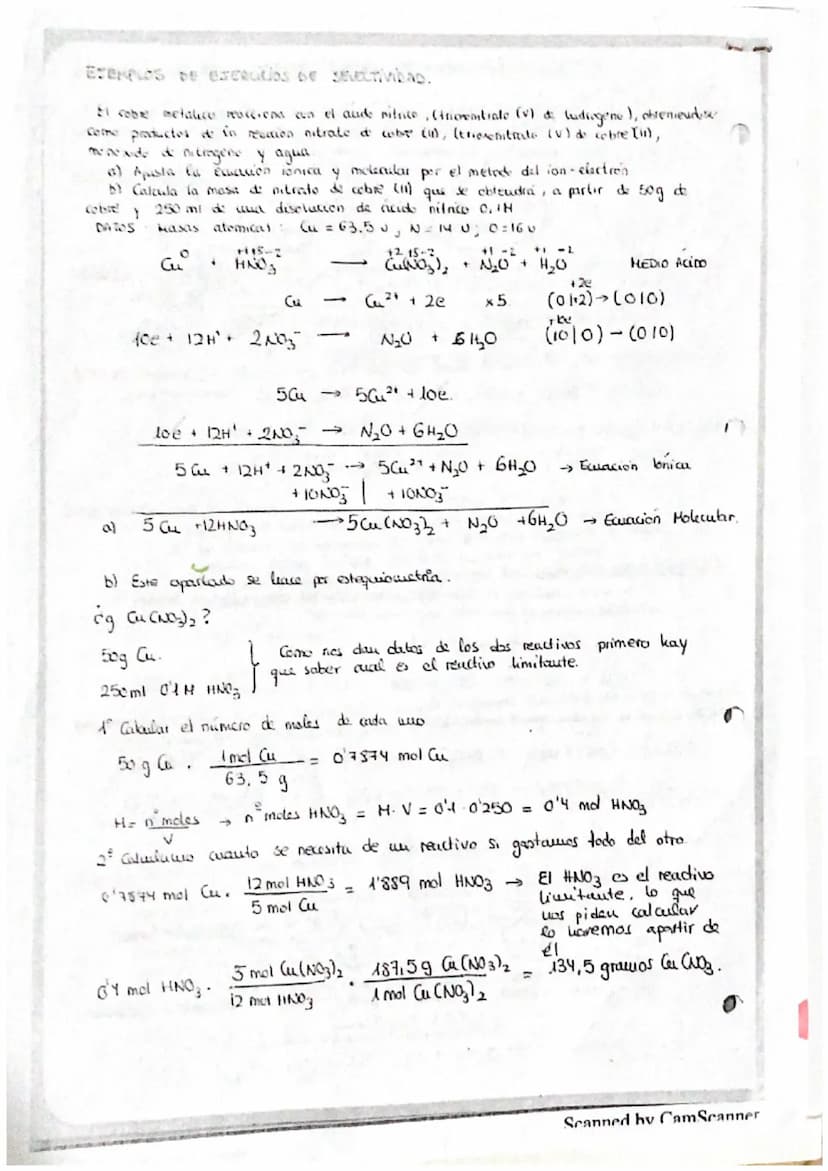 EJEMPLOS DE EJERCICIOS DE SELECTIVIDAD.
El cobre metálico reacciona con el ácido nítrico, (trioxonitrato (V) de hidrógeno), obteniéndose
como productos de la reacción nitrato de cobre (II), (trioxonitrato (V) de cobre (II),
monóxido de nitrógeno y agua
a) Ajusta la ecuación iónica y molecular por el método del ion-electrón
b) Calcula la masa de nitrato de cobre (II) que se obtendrá, a partir de 50g de
cobre y 250 ml de una disolución de ácido nítrico 0,1M
DATOS Masas atómicas: Cu = 63.5 u, N = 14 u; O=16 u
0 +1+5-2 +2 +5-2 +1 -2 +1 -2
Cu + HNO3 → Cu(NO3)2 + N2O + H2O MEDIO ÁCIDO
+2e
Cu → Cu2+ + 2e x5 (0|+2)→(0|0)
10e + 12H+ + 2NO3- → N2O + 6H2O (10|0)-(0|0)
5Cu → 5Cu2+ + 10e.
10e + 12H+ + 2NO3- → N2O + 6H2O
5Cu + 12H+ + 2NO3- → 5Cu2+ + N2O + 6H2O → Ecuación Iónica
+ 10NO3- | + 10NO3-
a) 5Cu +12HNO3 → 5Cu(NO3)2 + N2O +6H2O → Ecuación Molecular.
b) Este apartado se hace por estequiometría.
¿g Cu(NO3)2?
50g Cu. } Como nos dan datos de los dos reactivos primero hay
250ml 0'1 M HNO3 } que saber cual es el reactivo limitante.
1º Calcular el número de moles de cada uno
50 g Cu · 1mol Cu / 63,5 g = 0'7874 mol Cu
M= nº moles / V → nº moles HNO3 = M·V = 0'1·0'250 = 0'4 mol HNO3
2º Calculamos cuanto se necesita de un reactivo si gastamos todo del otro
0'7874 mol Cu. 12 mol HNO3 / 5 mol Cu = 1'889 mol HNO3 → El HNO3 es el reactivo
limitante, lo que
nos piden calcular
lo haremos apartir de
él
0'4 mol HNO3 · 5 mol Cu(NO3)2 / 12 mol HNO3 · 187,5 g Cu(NO3)2 / 1 mol Cu(NO3)2 = 134,5 gramos Cu(NO3.
Scanned by CamScanner